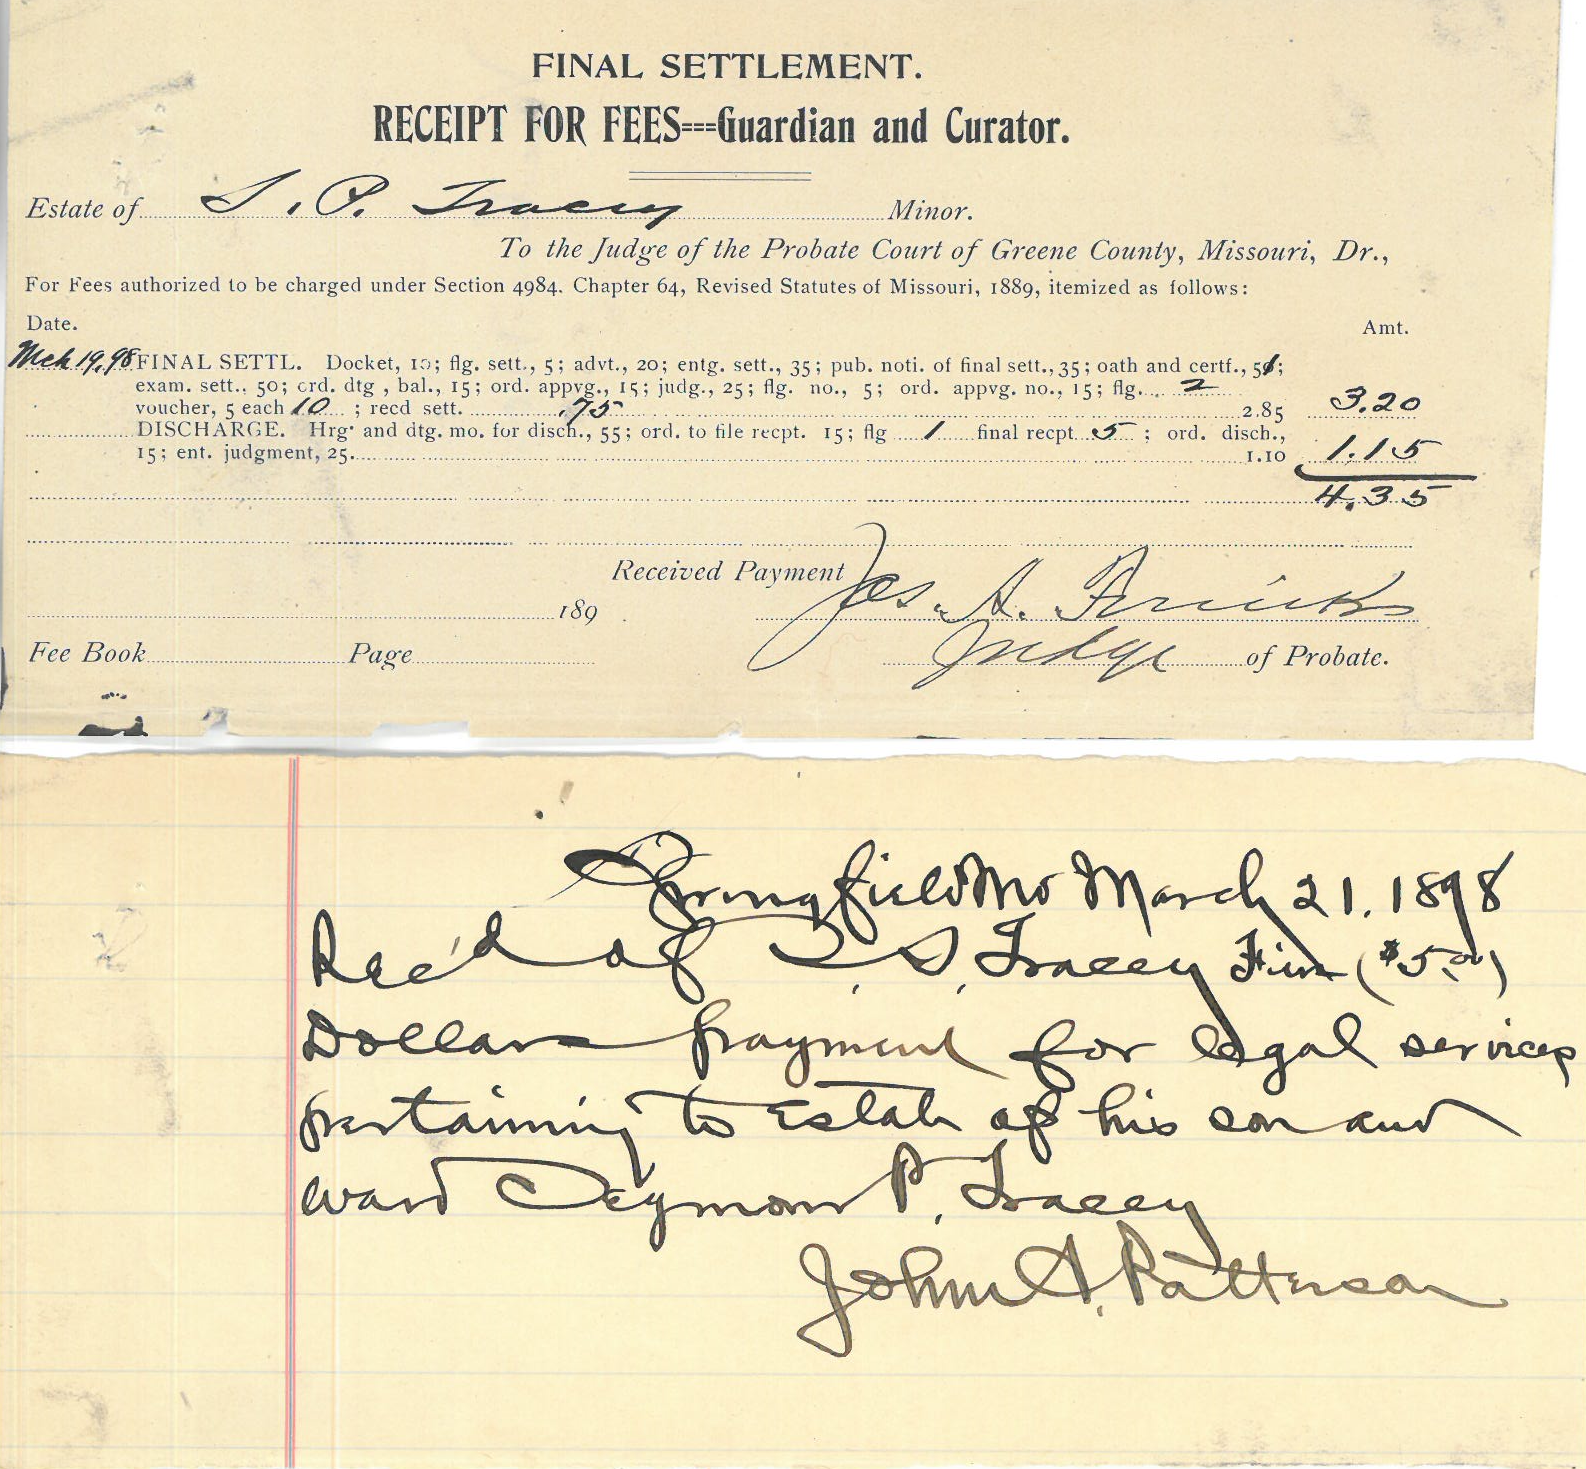 FINAL SETTLEMENT.
RECEIPT FOR FEES===Guardian and Curator.
Estate of S. P. Tracey Minor.
To the Judge of the Probate Court of Greene County, Missouri, Dr.,
For Fees authorized to be charged under Section 4984. Chapter 64, Revised Statutes of Missouri, 1889, itemized as follows:
Date. Amt.
Mch 19, 98 FINAL SETTL. Docket, 10; flg. sett., 5; advt., 20; entg. sett., 35; pub. noti. of final sett., 35; oath and certf., 5¢;
exam. sett., 50; ord. dtg , bal., 15; ord. appvg., 15; judg., 25; flg. no., 5; ord. appvg. no., 15; flg. 2
voucher, 5 each 10 ; recd sett. .75 2.85 3.20
DISCHARGE. Hrg. and dtg. mo. for disch., 55; ord. to file recpt. 15; flg 1 final recpt 5 ; ord. disch.,
15; ent. judgment, 25. 1.10 1.15
4.35
Received Payment Jos. A.
189
Fee Book Page Judge of Probate.
Springfield Mo March 21, 1898
Rec'd of S. Tracey Five ($5.00)
Dollars payment for legal services
pertaining to Estate of his son and
ward Seymour P. Tracey
John A. Patterson